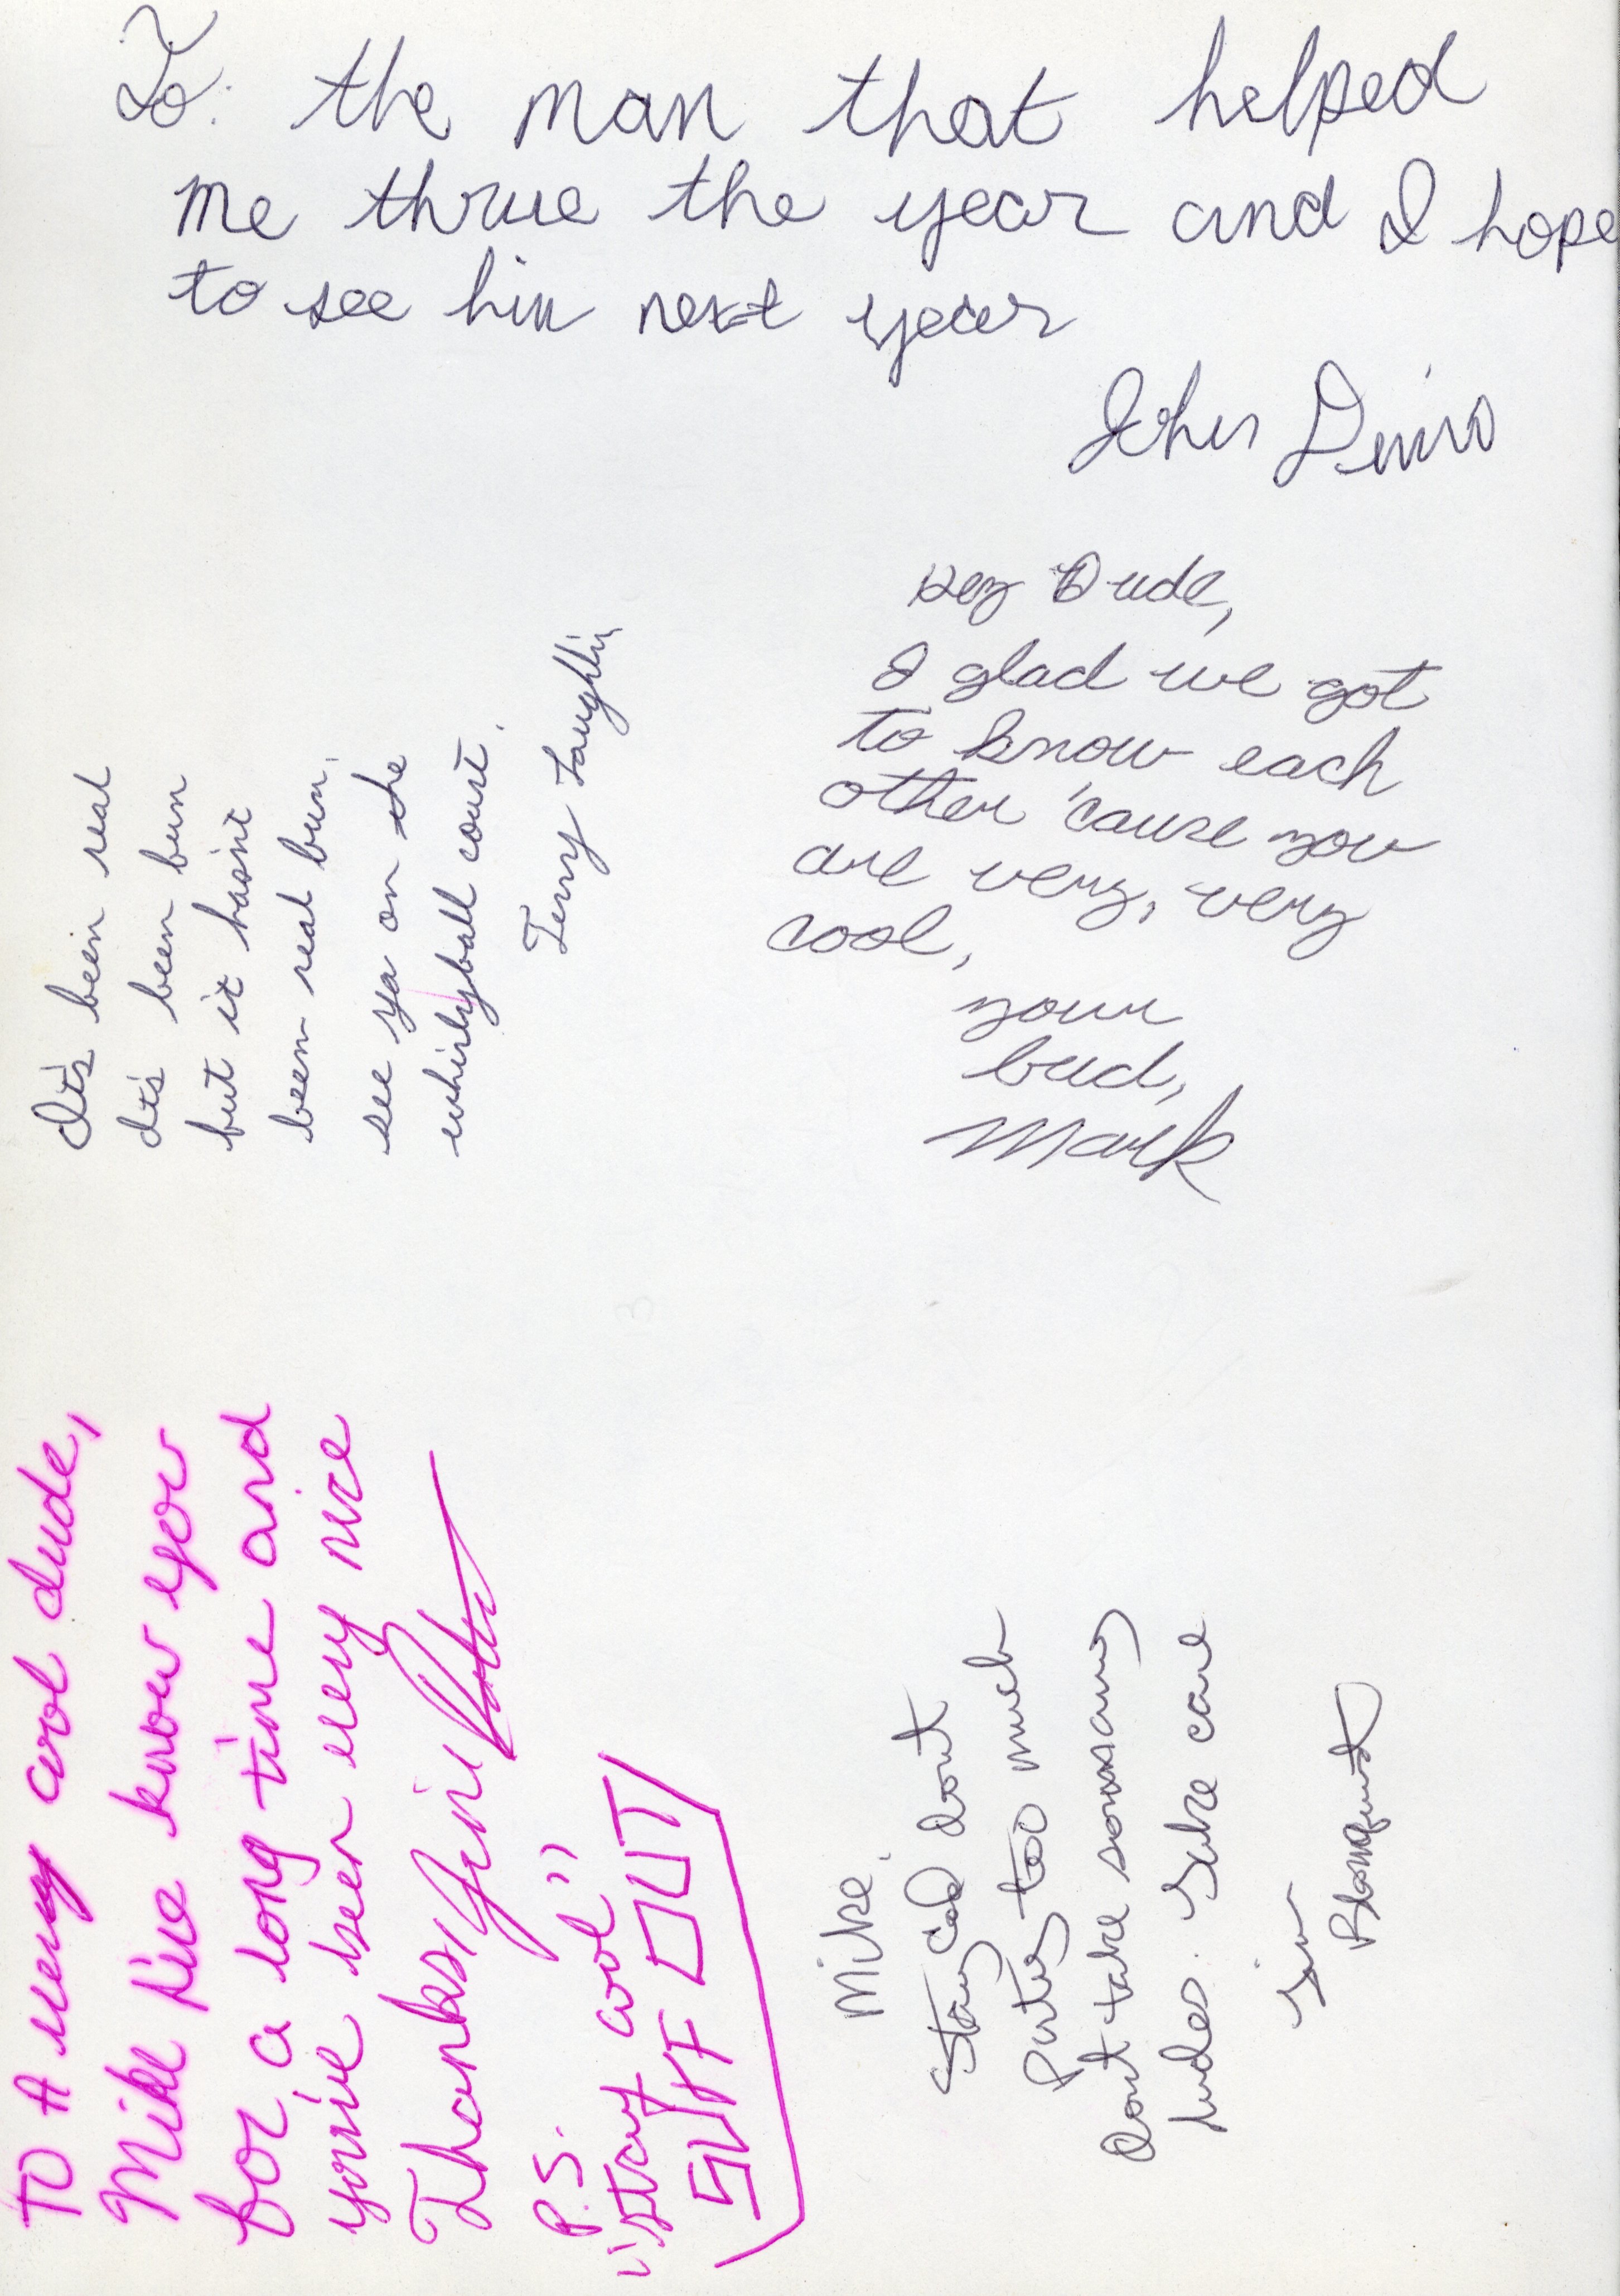 To: the man that helped
me thrue the year and I hope
to see him next year
John
Hey Dude,
I glad we got
to know each
other 'cause you
are very, very
cool,
your
bud,
Mark
It's been real
It's been fun
but it hasint
been real fun.
see ya on the
whirlyball court.
Terry Laughlin
TO A very cool dude,
Mike I've know you
for a long time and
you've been very nice
Thanks, Jim
P.S.
"stay cool"
SURF OUT
Mike,
Stay cool dont
Party too much
Dont take so many
ludes. Take care
Jim
Blomquist